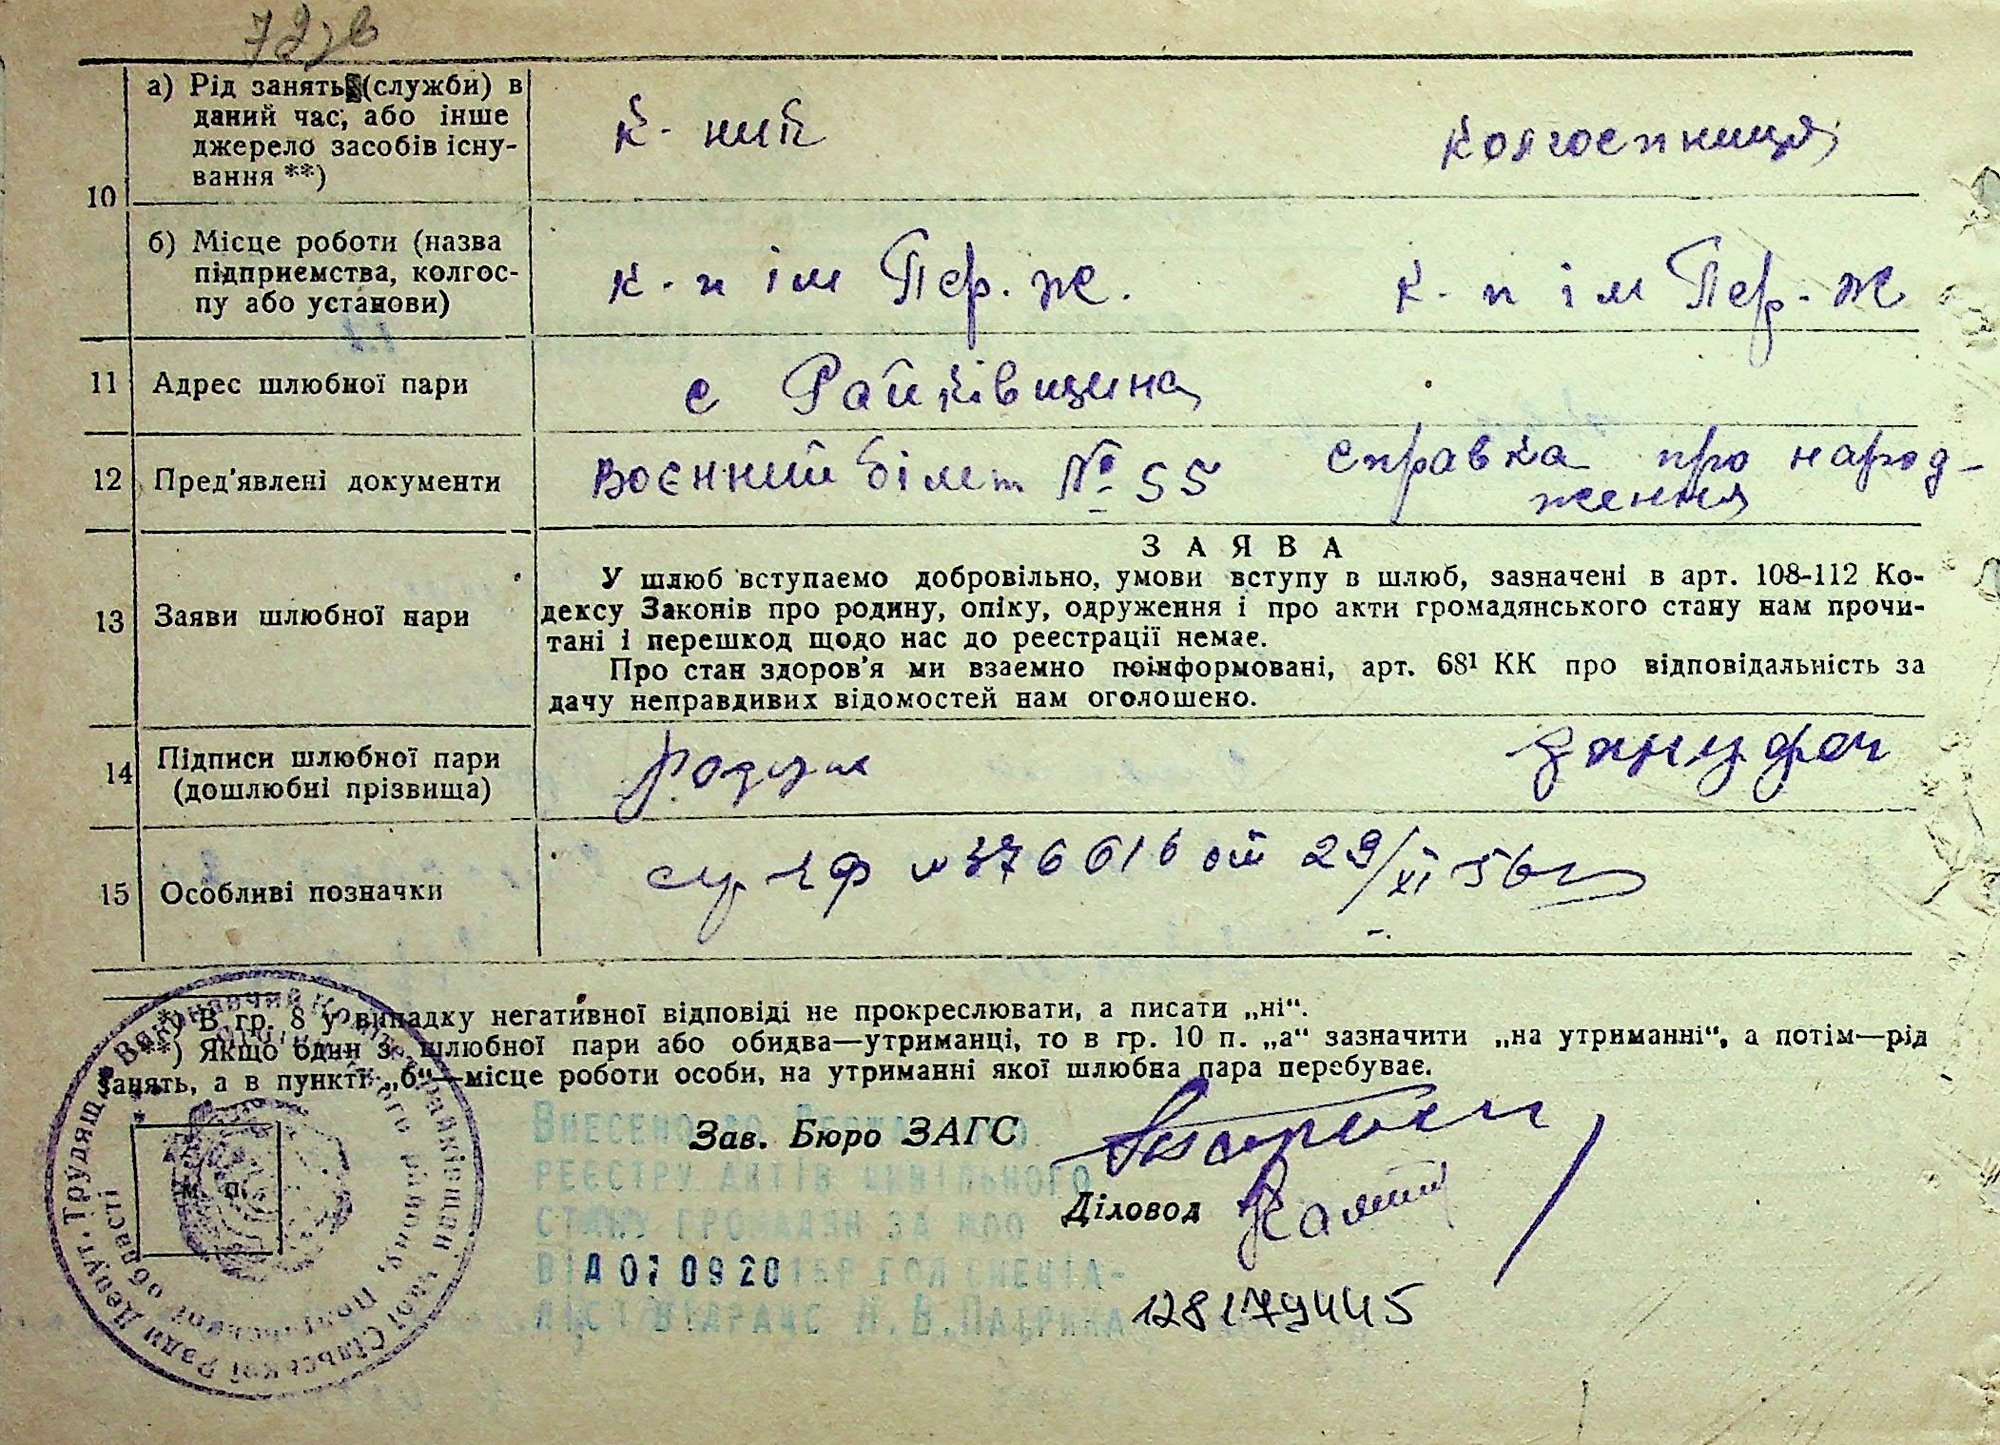 10
а) Рід занять (служби) в
даний час, або інше
джерело засобів існу-
вання **)
к-ник
колгоспниця
б) Місце роботи (назва
підприємства, колгос-
пу або установи)
к-п ім Пер. Ж.
к-п ім Пер. Ж
11 Адрес шлюбної пари
с Райківщина
12 Пред'явлені документи
воєнний білет № 55
справка про народ-
ження
13 Заяви шлюбної пари
ЗАЯВА
У шлюб вступаємо добровільно, умови вступу в шлюб, зазначені в арт. 108-112 Ко-
дексу Законів про родину, опіку, одруження і про акти громадянського стану нам прочи-
тані і перешкод щодо нас до реєстрації немає.
Про стан здоров'я ми взаємно поінформовані, арт. 68¹ КК про відповідальність за
дачу неправдивих відомостей нам оголошено.
14 Підписи шлюбної пари
(дошлюбні прізвища)
15 Особливі позначки
№ 376616 от 29/XI 56г
*) В гр. 8 у випадку негативної відповіді не прокреслювати, а писати „ні“.
**) Якщо один з шлюбної пари або обидва—утриманці, то в гр. 10 п. „а“ зазначити „на утриманні“, а потім—рід
занять, а в пункті „б“—місце роботи особи, на утриманні якої шлюбна пара перебуває.
Зав. Бюро ЗАГС
Діловод
М. П.
Виконавчий Комітет Райківщанської Сільської Ради Депут. Трудящ.
району, Полтавської області
Внесено до Державного
реєстру актів цивільного
стану громадян за №00
від 07 09 20
128179445